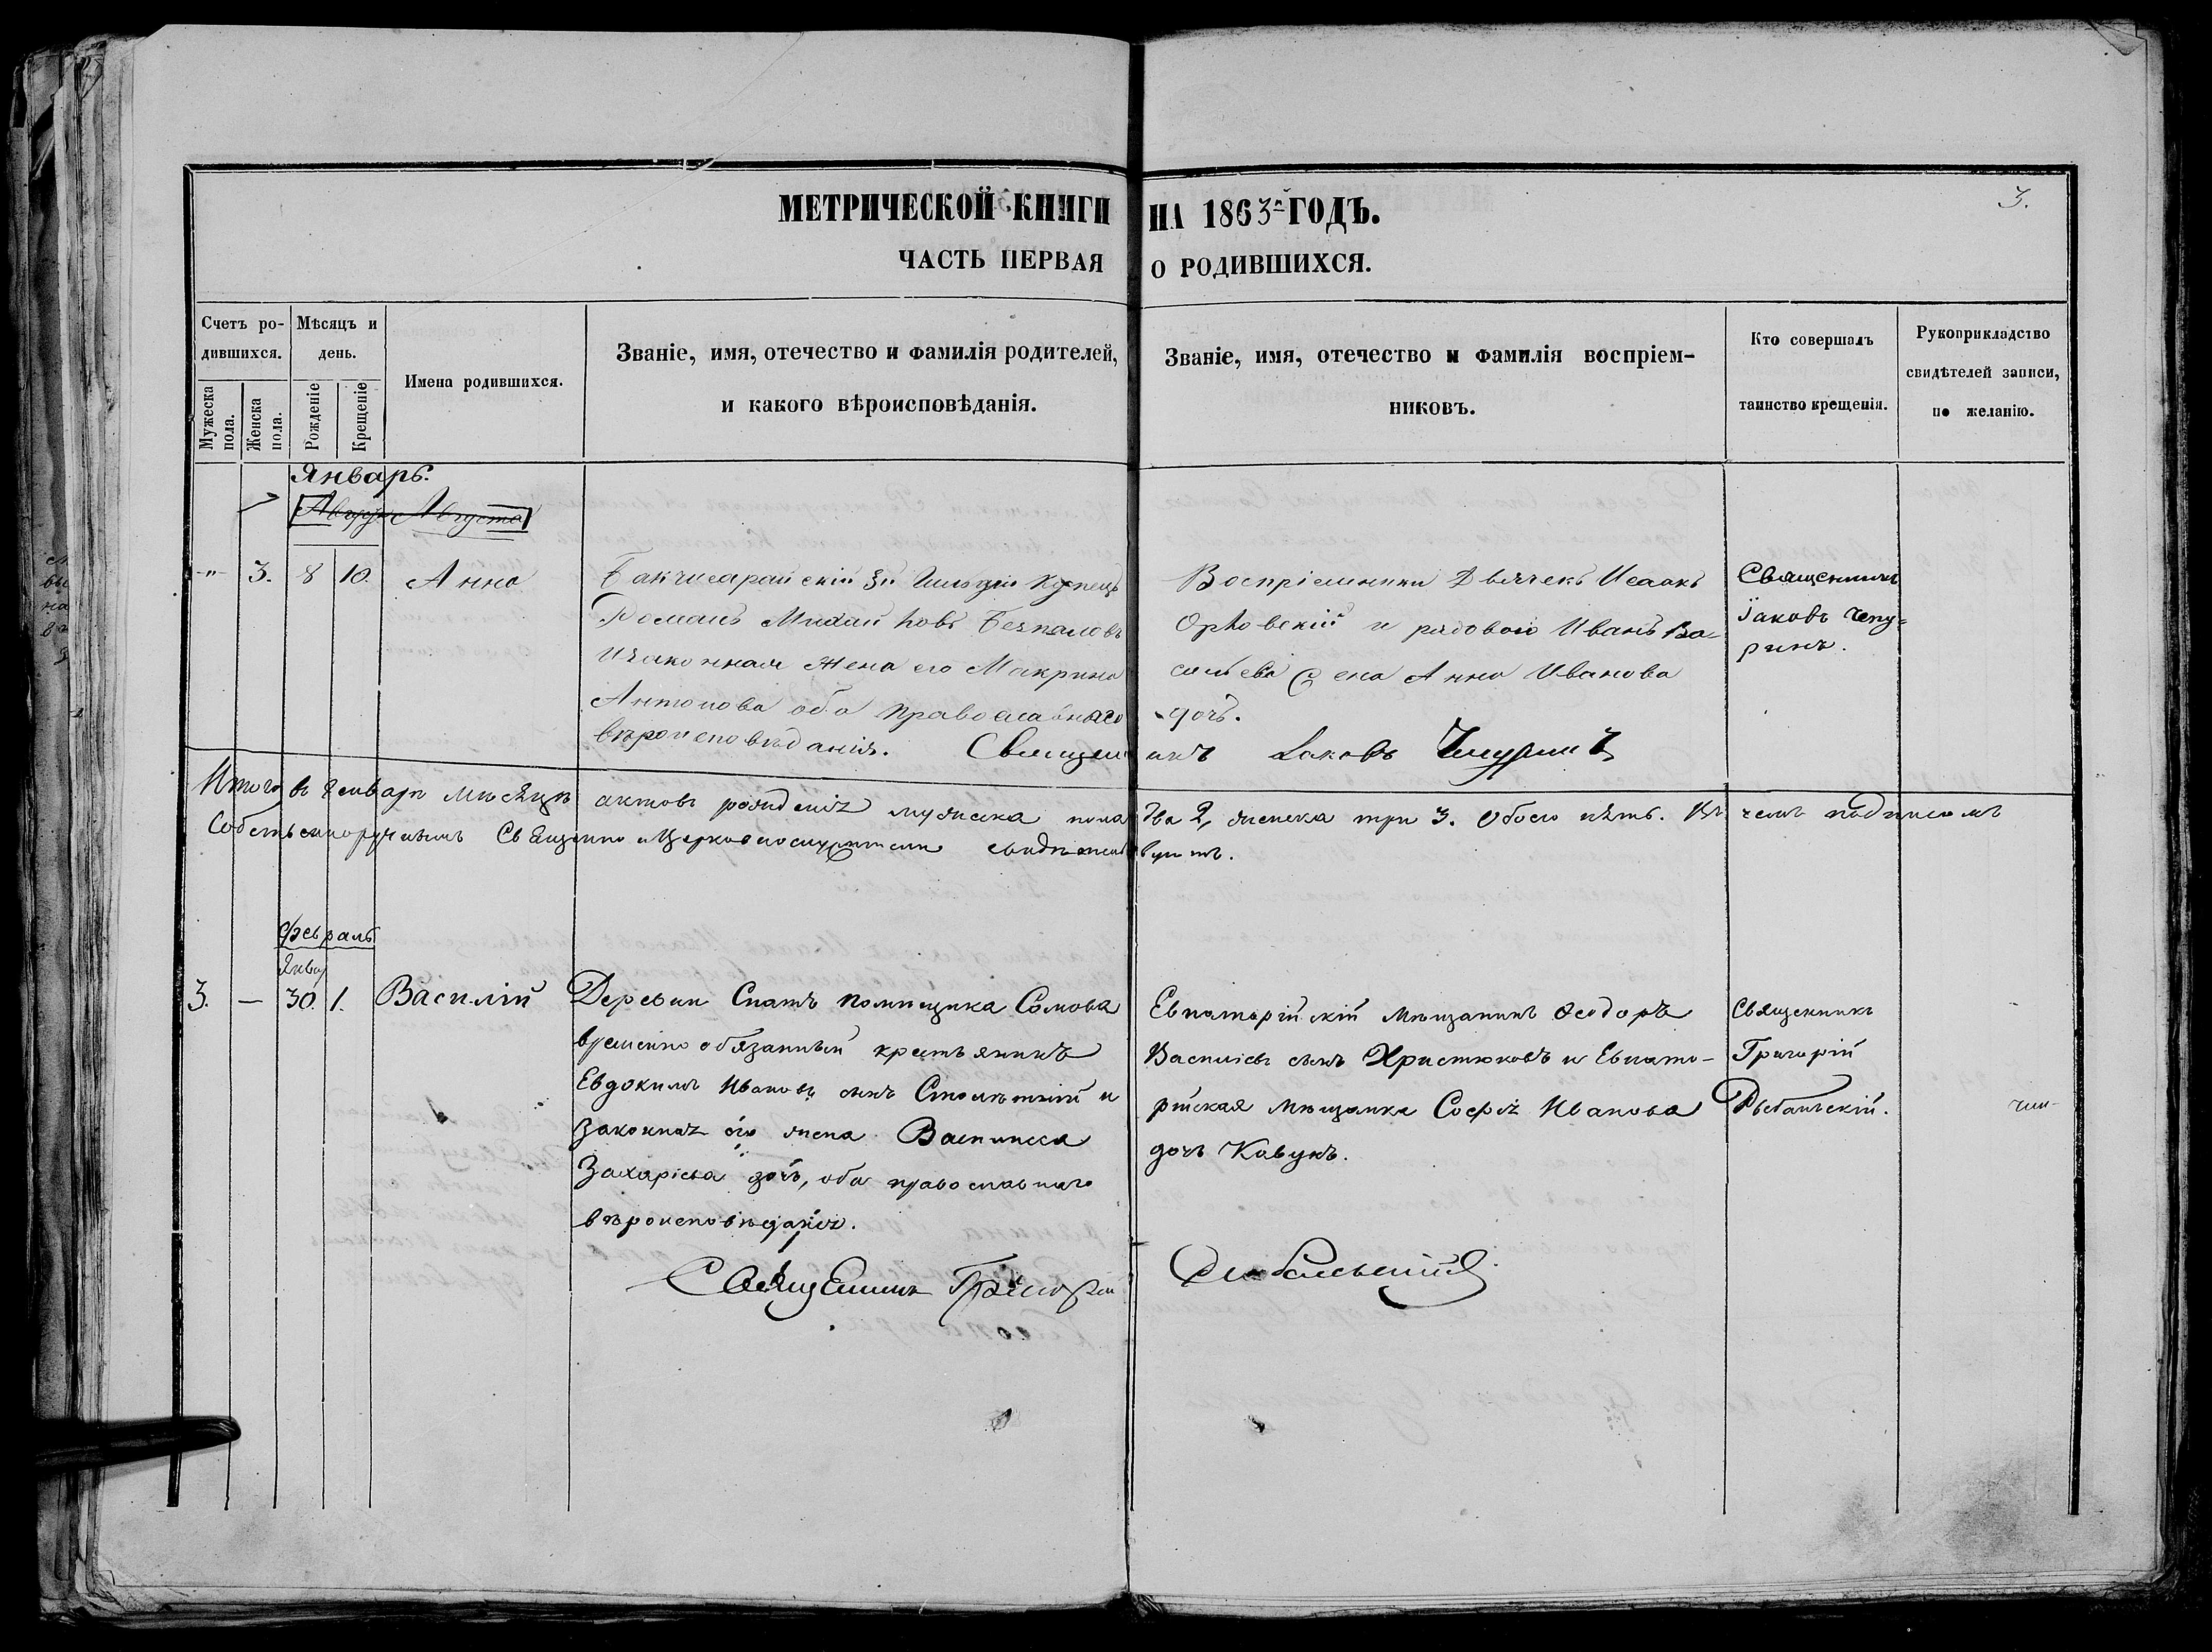 МЕТРИЧЕСКОЙ КНИГИ НА 1863й ГОДЪ.
3.
ЧАСТЬ ПЕРВАЯ О РОДИВШИХСЯ.
Счетъ ро-
дившихся.
Мужеска
пола.
Женска
пола.
Мѣсяцъ и
день.
Рожденіе
Крещеніе
Имена родившихся.
Званіе, имя, отечество и фамилія родителей,
и какого вѣроисповѣданія.
Званіе, имя, отечество и фамилія воспріем-
никовъ.
Кто совершалъ
таинство крещенія.
Рукоприкладство
свидѣтелей записи,
по желанію.
Январь.
Августа
-"- 3. 8 10. Анна
Бакчисарайскій 3й Гильдіи Купецъ
Романъ Михайловъ Безпаловъ
и законная жена его Макрина
Антонова оба православнаго
вѣроисповѣданія.
Воспріемники Дьячекъ Исаакъ
Орловскій и рядового Ивана Ва-
сильева жена Анна Иванова
дочь.
Священникъ
Іаковъ Чепу=
ринъ.
Священникъ Іаковъ Чепуринъ
Итого въ Январѣ мѣсяцѣ актовъ рожденія мужеска пола два 2, женска три 3. Обоего пять. Въ чемъ подписомъ
Собственноручнымъ Священно и Церковнослужители свидѣтельствуютъ.
Февраль
Январ
3. — 30. 1. Василій
Деревни Спатъ помѣщика Сомова
временно обязанный крестьянинъ
Евдокимъ Ивановъ сынъ Столѣтній и
законная его жена Василисса
Захаріева дочь, оба православнаго
вѣроисповѣданія.
Евпаторійскій мѣщанинъ Ѳеодоръ
Василіевъ сынъ Христюковъ и Евпато-
рійская мѣщанка Софія Иванова
дочь Кавунъ.
Священникъ
Григорій
Рыбальскій.
Священникъ Григорій Рыбальскій